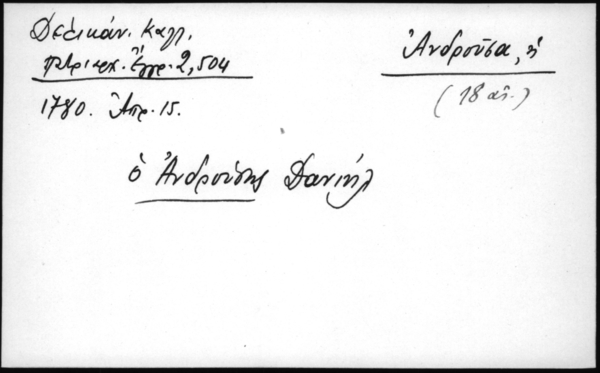 Δελικάν. Καλλ.
πατριαρχ. Ἔγγρ. 2, 504
1780. Ἀπρ. 15.
Ἀνδροῦσα, ἡ
(18 αἰ.)
ὁ Ἀνδρούσης Δανιήλ